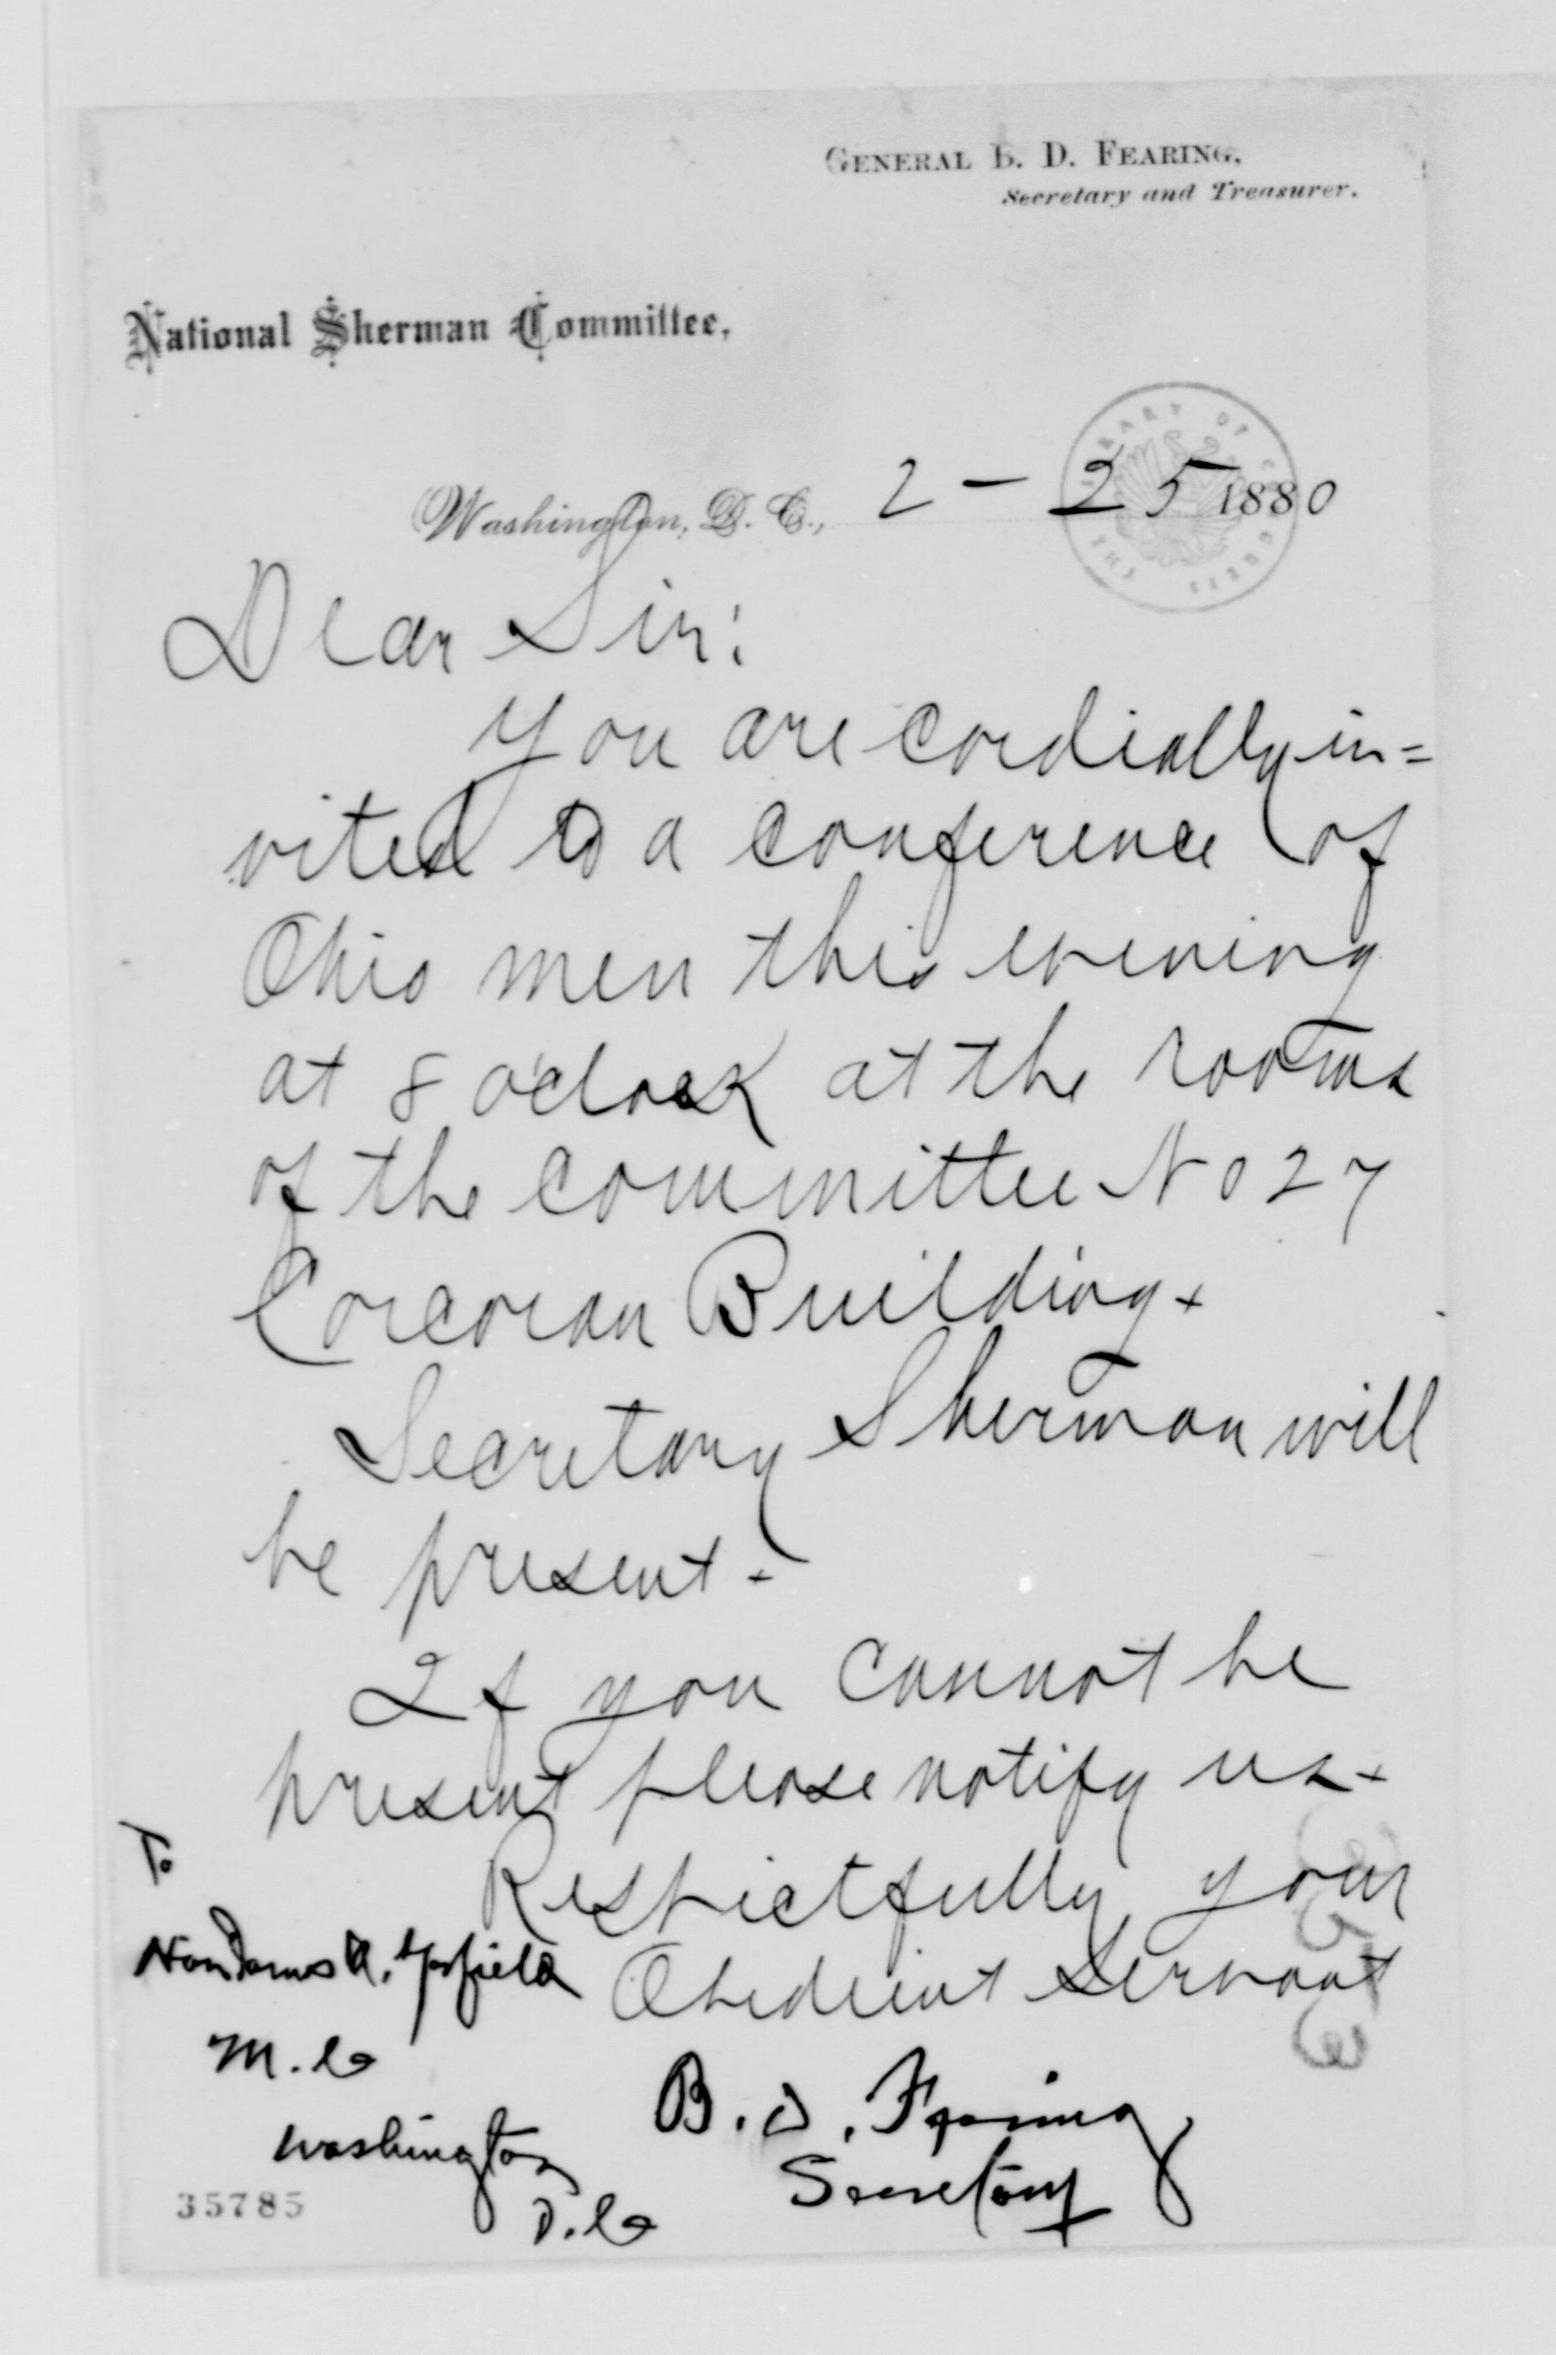 GENERAL B. D. FEARING,
Secretary and Treasurer.
National Sherman Committee.
THE LIBRARY OF CONGRESS
Washington, D. C., 2 - 25 1880
Dear Sir:
You are cordially in=
vited to a conference of
Ohio men this evening
at 8 o'clock at the rooms
of the committee No 27
Corcoran Building.
Secretary Sherman will
be present.
If you cannot be
present please notify us.
Respectfully your
Obedient servant
B. D. Fearing
Secretary
To
Hon James A. Garfield
M. C
Washington
D. C
35785